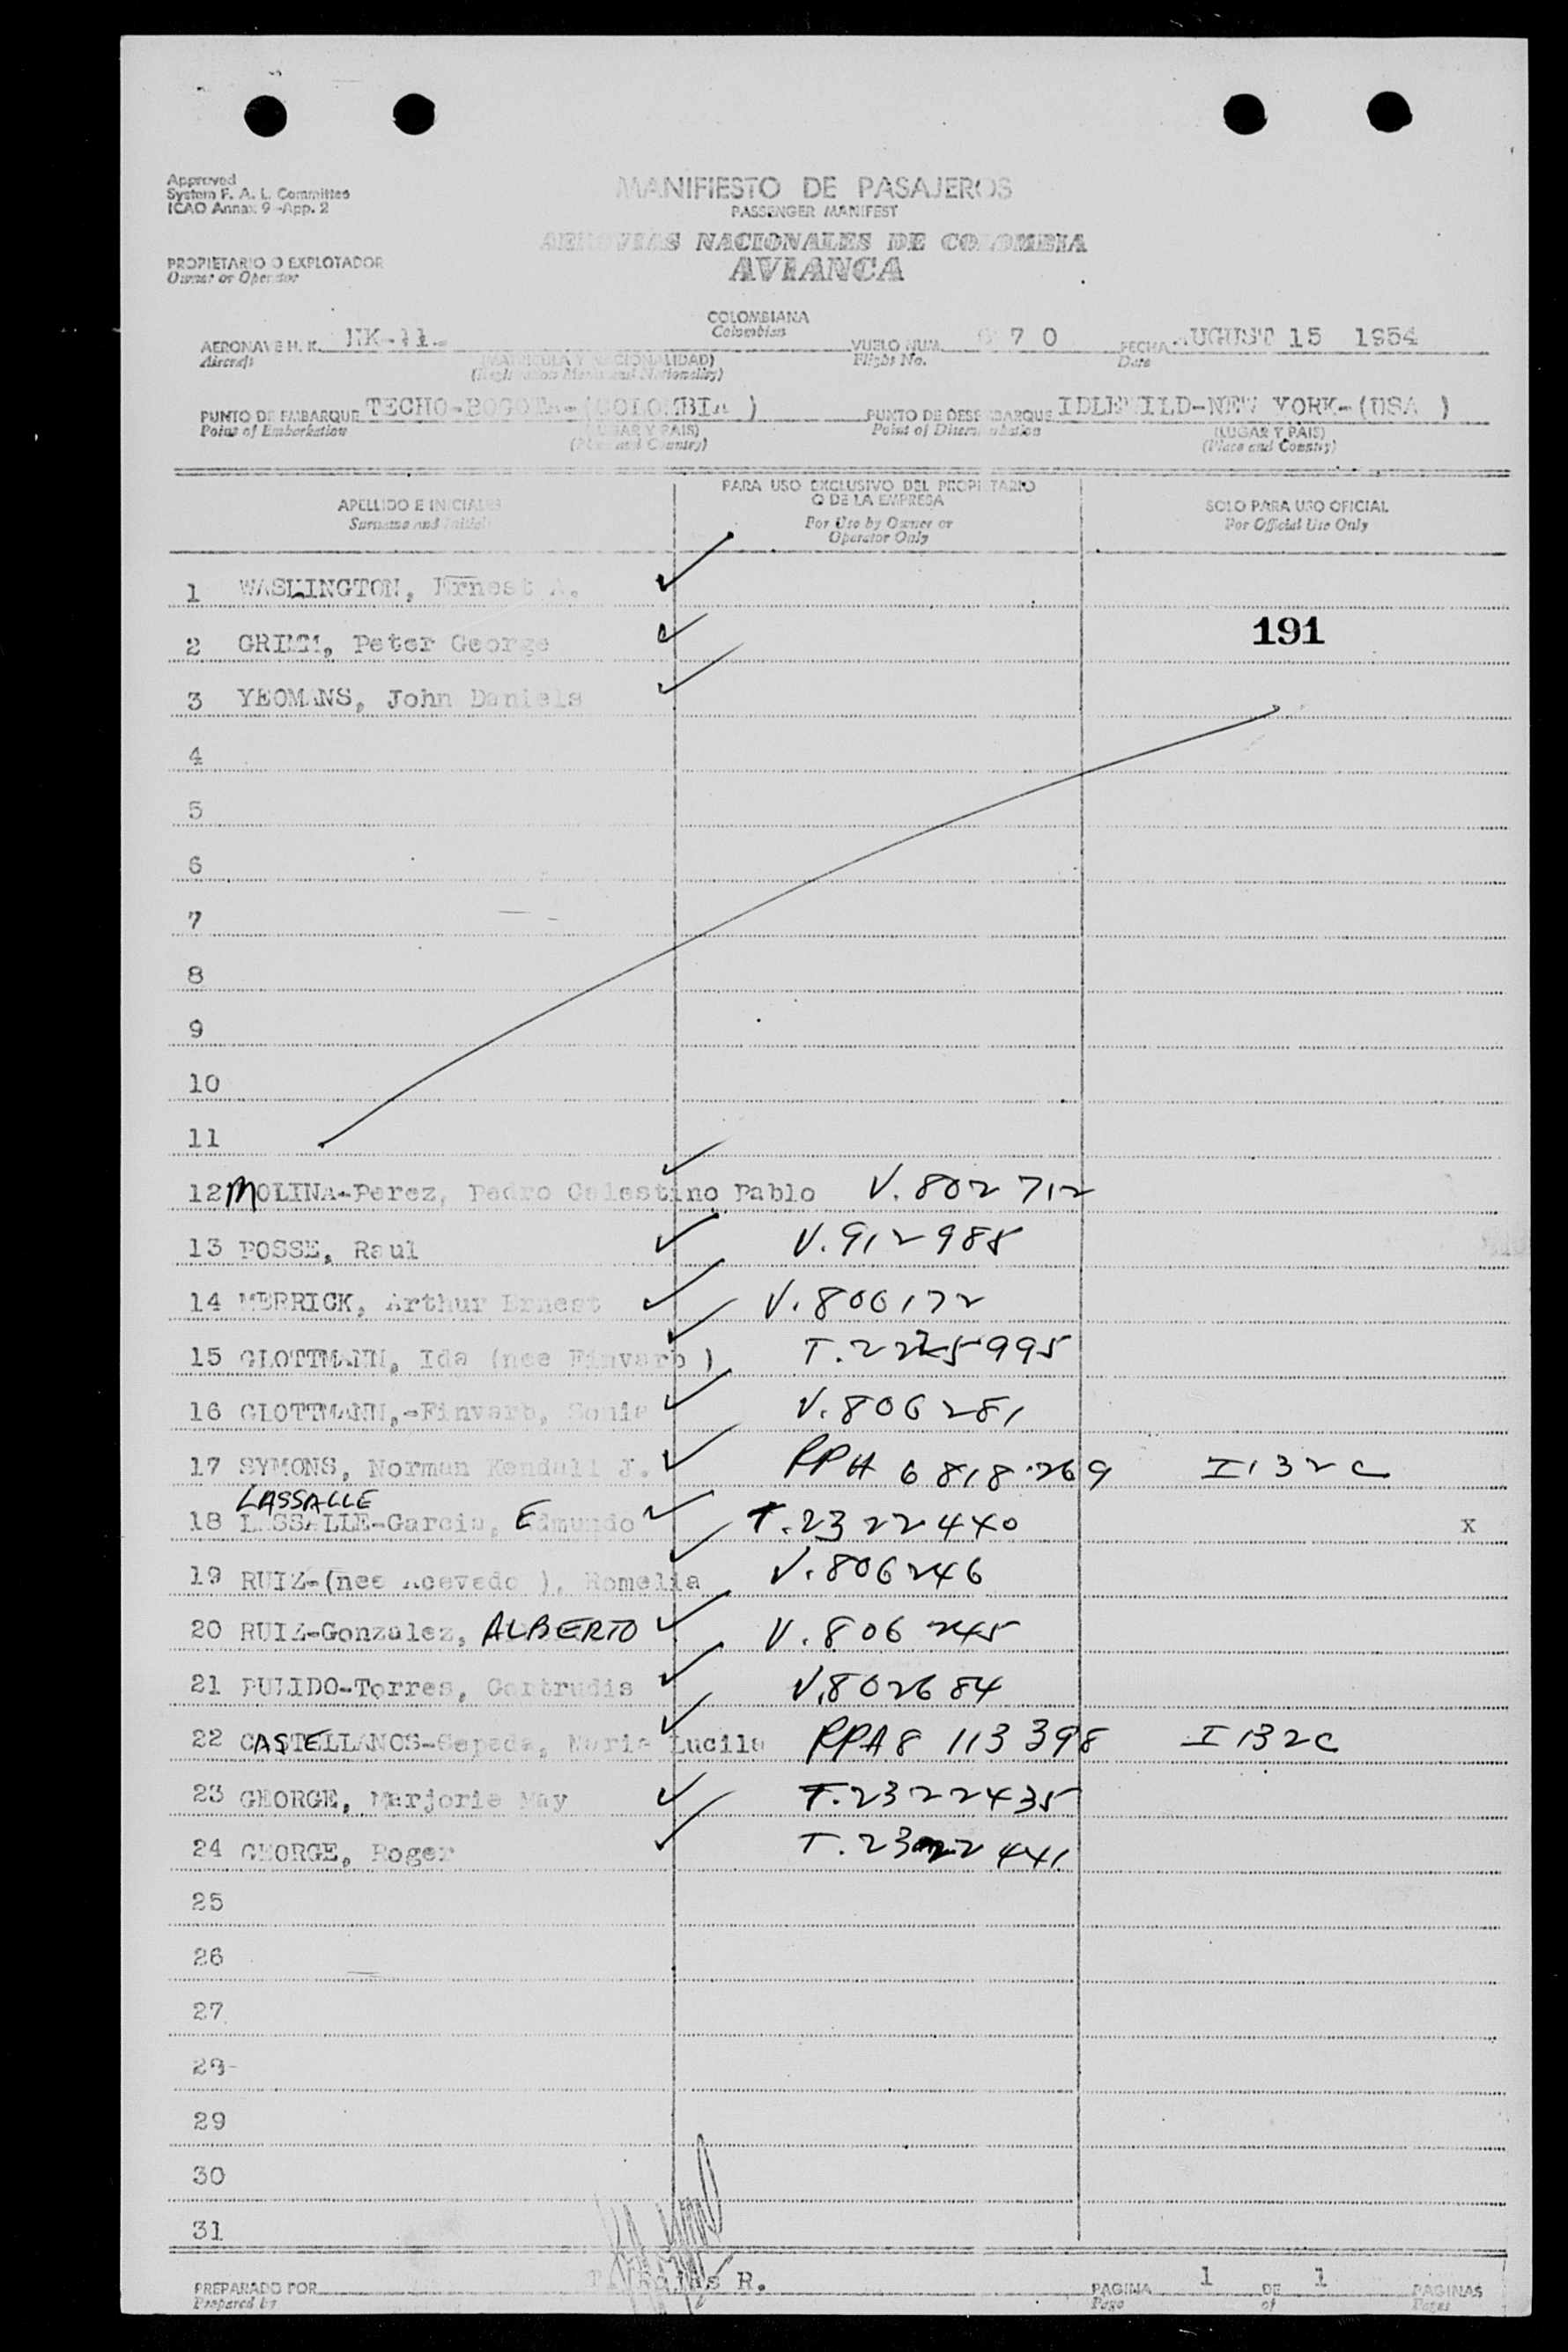 Approved
System F. A. L. Committee
ICAO Annax 9-App. 2
MANIFIESTO DE PASAJEROS
PASSENGER MANIFEST
AEROVIAS NACIONALES DE COLOMBIA
AVIANCA
PROPIETARIO O EXPLOTADOR
Owner or Operator
COLOMBIANA
Colombian
AERONAVE H. K. VUELO NUM. 70 FECHA AUGUST 15 1954
Aircraft (MATRICULA Y NACIONALIDAD) Flight No. Date
(Registration Marks and Nationality)
PUNTO DE EMBARQUE TECHO-BOGOTA-(COLOMBIA ) PUNTO DE DESEMBARQUE IDLEWILD-NEW YORK-(USA )
Point of Embarkation (LUGAR Y PAIS) Point of Disembarkation (LUGAR Y PAIS)
(Place and Country) (Place and Country)
APELLIDO E INICIALES PARA USO EXCLUSIVO DEL PROPIETARIO O DE LA EMPRESA SOLO PARA USO OFICIAL
Surname and Initials For Use by Owner or Operator Only For Official Use Only
1 WASHINGTON, Ernest A.
191
2 GRIMM, Peter George
3 YEOMANS, John Daniels
4
5
6
7
8
9
10
11
12 MOLINA-Perez, Pedro Celestino Pablo V. 802712
13 POSSE, Raul V. 912988
14 MERRICK, Arthur Ernest V. 806172
15 GLOTTMANN, Ida (nee Finvarb ) T. 2225995
16 GLOTTMANN,-Finvarb, Sonia V. 806281
17 SYMONS, Norman Kendall J. I132C
LASSALLE
18 LASSALLE-Garcia, Edmundo T. 2322440 x
19 RUIZ-(nee Acevedo ), Romelia V. 806246
20 RUIZ-Gonzalez, ALBERTO V. 806245
21 PULIDO-Torres, Gertrudis V. 802684
22 CASTELLANOS-Cepeda, Maria Lucila PPA8 113398 I132C
23 GEORGE, Marjorie May T. 2322435
24 GEORGE, Roger T. 2322441
25
26
27
28-
29
30
31
PREPARADO POR R. PAGINA 1 DE 1 PAGINAS
Prepared by Page of Pages